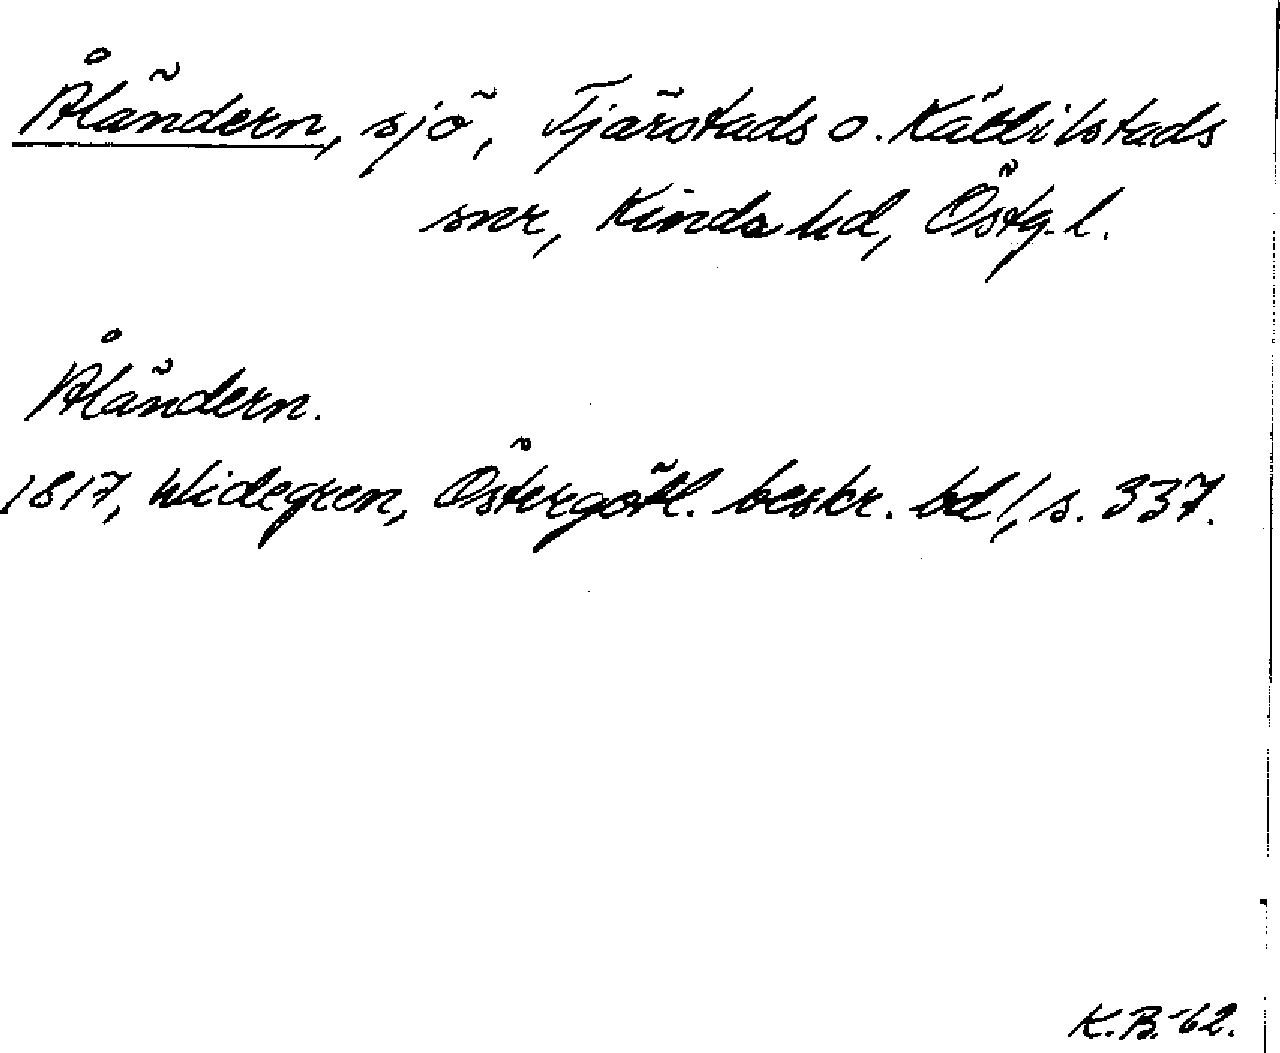 Åländern, sjö, Tjärstads o. Kättilstads
snr, Kinds hd, Östg. l.
Åländern.
1817, Widegren, Östergötl. beskr. bd 1, s. 337.
K.B.-62.